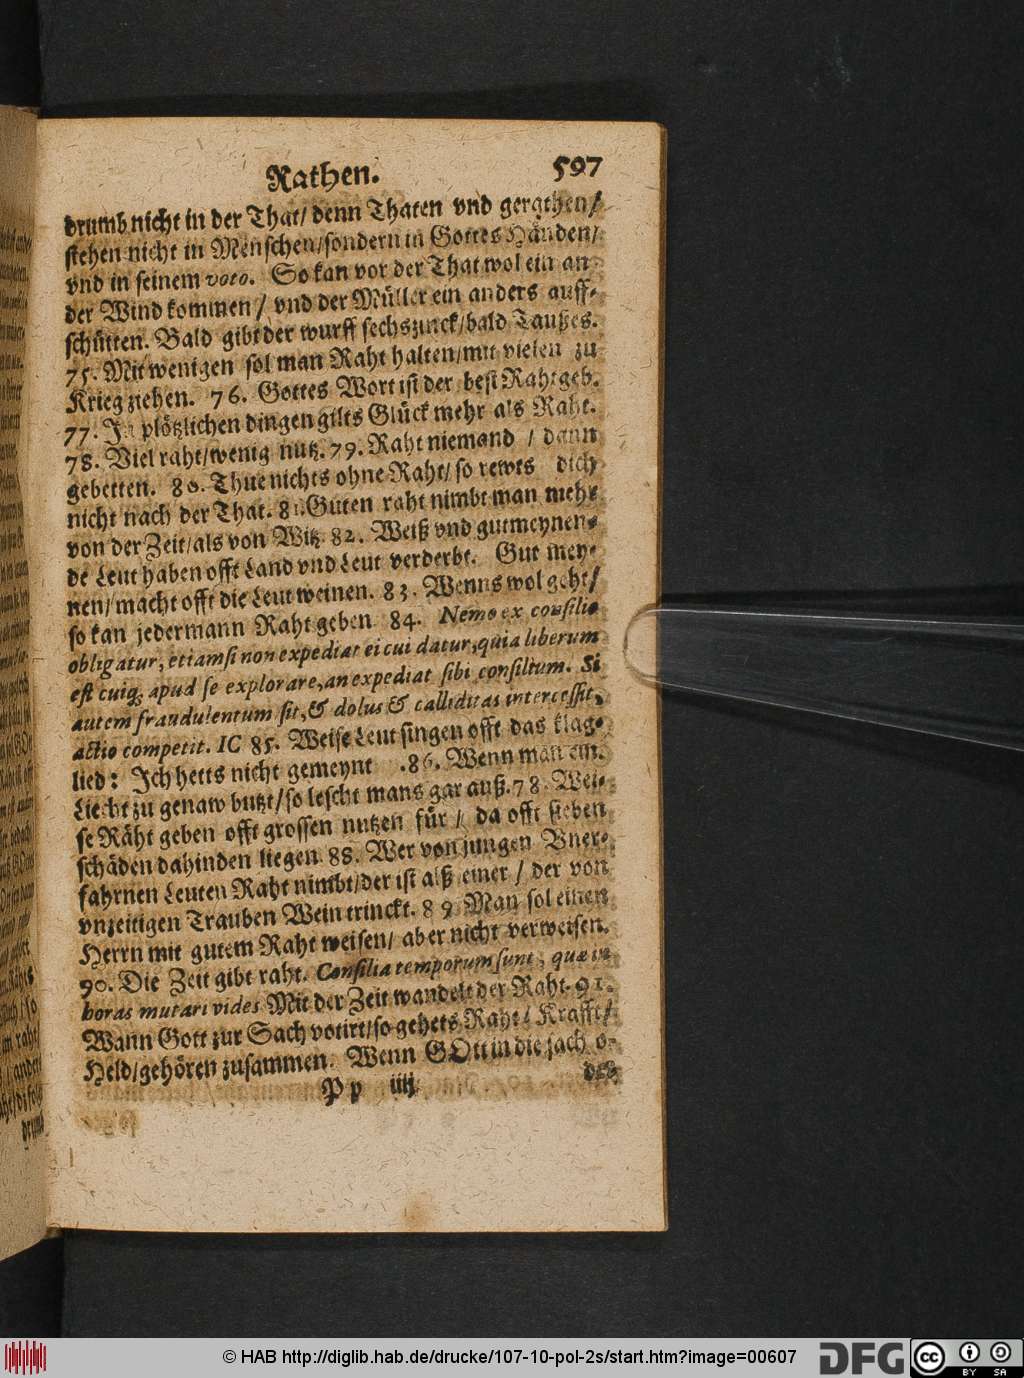 Rathen. 597
drumb nicht in der That/ denn Thaten vnd gerathen/
stehen nicht in Menschen/sondern in Gottes Händen/
vnd in seinem voto. So kan vor der That wol ein an-
der Wind kommen/ vnd der Müller ein anders auff-
schütten. Bald gibt der wurff sechszinck/bald Taußes.
75. Mit wenigen sol man Raht halten/mit vielen zu
Krieg ziehen. 76. Gottes Wort ist der best Rahtgeb.
77. In plötzlichen dingen gilts Glück mehr als Raht.
78. Viel raht/wenig nutz. 79. Raht niemand / dann
gebetten. 80. Thue nichts ohne Raht/ so rewts dich
nicht nach der That. 81. Guten raht nimbt man mehr
von der Zeit/als von Witz. 82. Weiß vnd gutmeynen-
de Leut haben offt Land vnd Leut verderbt. Gut mey-
nen/macht offt die Leut weinen. 83. Wenns wol geht/
so kan jedermann Raht geben 84. Nemo ex consilio
obligatur, etiamsi non expediat ei cui datur, quia liberum
est cuiq; apud se explorare, an expediat sibi consilium. Si
autem fraudulentum sit, & dolus & calliditas intercessit,
actio competit. IC 85. Weise Leut singen offt das klag-
lied: Ich hetts nicht gemeynt. 86. Wenn man ein
Liecht zu genaw butzt/so lescht mans gar auß. 78. Wei-
se Räht geben offt grossen nutzen für / da offt sieben
schäden dahinden liegen. 88. Wer von jungen Vner-
fahrnen Leuten Raht nimbt/der ist alß einer / der von
vnzeitigen Trauben Wein trinckt. 89 Man sol einen
Herrn mit gutem Raht weisen/ aber nicht verweisen.
90. Die Zeit gibt raht. Consilia temporum sunt, quæ in
horas mutari vides Mit der Zeit wandelt der Raht. 91.
Wann Gott zur Sach votirt/so gehets Raht/ Krafft/
Held/gehören zusammen. Wenn GOtt in die sach o-
Pp iiij der
© HAB http://diglib.hab.de/drucke/107-10-pol-2s/start.htm?image=00607 DFG cc BY SA